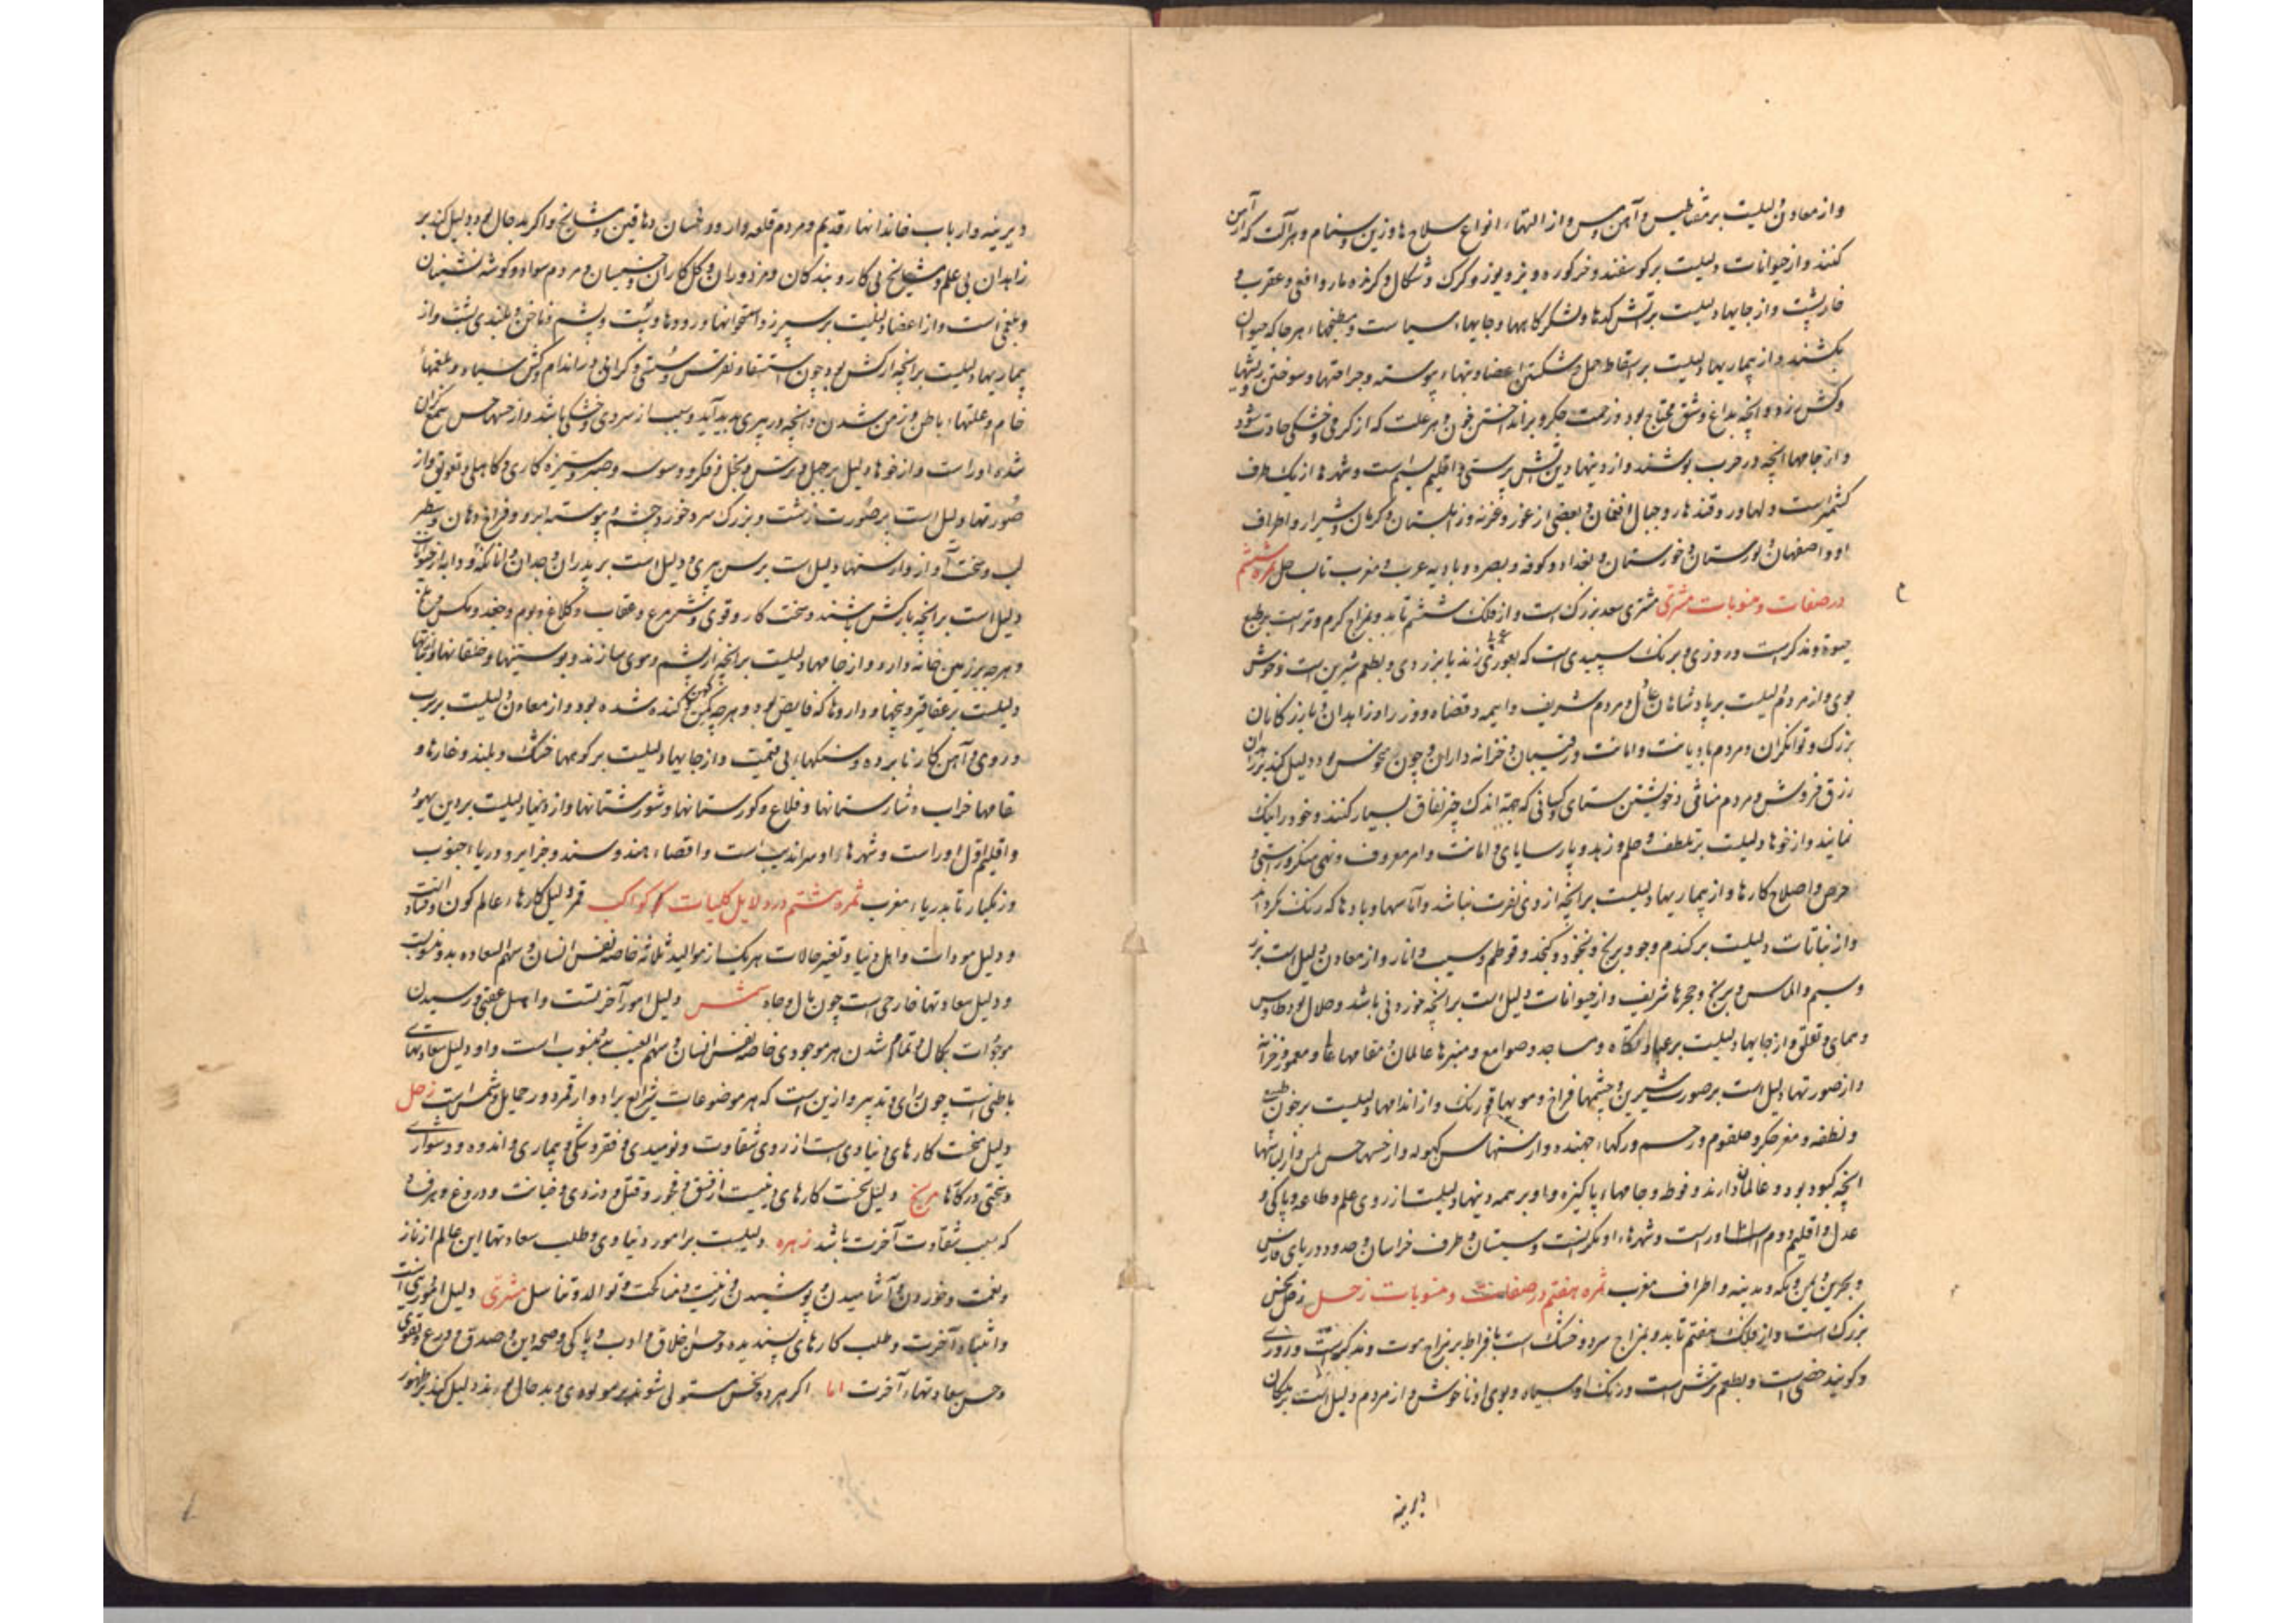 واز معادن دلیلست بر مقناطیس و آهن و مس واز التها انواع سلاح ها وزین وستام و هر آلت که از آهن
کنند واز حیوانات دلیلست بر کوسفند وخر کوره و بز و یوز و کرک و شکال و کرنده مار و افعی و عقرب و
خارپشت واز جایها دلیلست بر آتش کدها ولشکر کاهها وجایها سیاست ومطبخها هر جا که حیوان
بکشند واز بیماریها دلیلست بر اسقاط حمل و شکستن اعضا وتبها پیوسته وجراحتها وسوختن
بود وزحمت جکر وبر انداختن خون و هر علت که از کرمی وخشکی حادث شود
واز جامها آنچه در حرب پوشند واز دینها دین آتش پرستی و اقلیم سیم است وشهرها از یک طرف
کشمیر است ولهاور وقندهار وجبال افغان و بعضی از غور وغزنه وزابلستان و کرمان و شیراز واطراف
او واصفهان و لورستان و خورستان و بغداد وکوفه وبصره وبادیه عرب و مغرب تا ساحل ثمره ششم
در صفات ومنسوبات مشتری مشتری سعد بزرک است واز فلک ششم تابد وبمزاج کرم وتر است بر طبع
حیوة ومذکرست وروزی وبرنک سپیدی است که زند یا بزردی وبطعم شیرین است وخوش
بوی واز مردم دلیلست بر پادشاهان عادل ومردم شریف وایمه وقضاة ووزرا وزاهدان و بازرکانان
بزرک وتوانکران ومردم با دیانت وامانت ورئیسان وخزانه داران وچون منحوس بود دلیل کند بر
زرق فروش ومردم منافق وخویشتن ستای وکسانی که بجهة اندک چیز نفاق بسیار کنند وخود را نیک
نمایند واز خوها دلیلست بر تلطف و حلم وزهد وپارسایی و امانت وامر معروف ونهی منکر وراستی و
حرص واصلاح کارها واز بیماریها دلیلست بر آنچه از وی نفرت نباشد وآماسها وبادها که رنک نکرداند
واز نباتات دلیلست بر کندم وجو وبرنج ونخود و کنجد وقوطم وسیب و انار واز معادن دلیل است بر زر
وسیم والماس و برنج وحجرها شریف واز حیوانات دلیل است بر آنچه خوردنی باشد وحلال بود وطاوس
وهمای و تعلق واز جایها دلیلست بر ومساجد وصوامع ومنبرها عالمان و مقامها ومعمور وخزانه
واز صورتها دلیل است بر صورت شیرین و چشمها فراخ ومویها واز اندامها دلیلست بر خون
ونطفه ومغز وجکر وحلقوم ورحم ورکها جهنده واز سنها سن کهوله واز حسها حس لمس واز لباسها
آنچه کبود بود وعالمان دارند وفوطه وجامها پاکیزه واو بر همه دینها دلیلست از روی علم وطاعه و پاکی و
عدل و اقلیم دوم اوراست وشهرها او وسیستان وطرف خراسان و حدود دریای فارس
وبحرین و یمن و مکه ومدینه واطراف مغرب ثمره هفتم در صفات ومنسوبات زحل زحل نحس
بزرک است واز فلک هفتم تابد وبمزاج سرد وخشک است بافراط بر مزاج موت ومذکرست وروزی
وکویند است وبطعم ترش است ورنک او سیاه وبوی او ناخوش و از مردم دلیل است بر
دیرینه
دیرینه وارباب خاندانها قدیم ومردم قلعه دار ورئیسان دهاقین و مشایخ واکر بد حال بود دلیل کند بر
زاهدان بی علم ومشایخ بی کار وبندکان ومزدوران و کل کاران و خسیسان و مردم سواد وکوشه نشینان
است واز اعضا دلیلست بر سپرز واستخوانها ورودها وپشت وپشم وناخن و بلندی پشت واز
بیماریها دلیلست بر آنچه بود چون استسقا ونقرس وسستی وکرانی و اندام وبلغمها
خام وعلتها باطن و زمن شدن وآنچه در پیری پدید آید وسبب از سردی وخشکی باشد واز حسها حس سمع
شده اوراست واز خوها دلیل بر جهل وترس و بخل وفکر ووسوسه وحیله وستیزه کاری و کاهلی وتعویق واز
صورتها دلیل است بر صورت زشت وبزرک سر وخورد چشم و پیوسته ابرو وفراخ دهان و سطبر
لب وسخت آواز واز سنها دلیل است بر سن پیری و دلیل است بر پدران و جدان
دلیل است بر آنچه بارکش باشند وسخت کار وقوی وشتر مرغ وعقاب وکلاغ وبوم وجغد ومکس
وهر چه در زمین خانه دارد واز جامها دلیلست بر آنچه از پشم وموی سازند وپوستینها
دلیلست بر عقاقیر وبیخها وداروها که قابض بود وهر چه کهن وکنده شده بود واز معادن دلیلست بر سرب
وروی و آهن کار نابرده وسنکها بی قیمت واز جایها دلیلست بر کوهها خشک وبلند وغارها و
مقامها خراب وشارستانها وقلاع وکورستانها وشورستانها واز دینها دلیلست بر دین یهود
واقلیم اول اوراست وشهرها او سراندیب است واقصاء هند وسند وجزایر دریا جنوب
وزنکبار تا بدریاء مغرب ثمره هشتم در دلایل کلیات کواکب قمر دلیل کارها عالم کون وفساد است
ودلیل مودات واهل دنیا وتغیر حالات هر یک از موالید ثلاثه خاصه نفس انسان وسهم السعاده بدو منسوبست
ودلیل سعادتها خارجی است چون مال وجاه شمس دلیل امور آخرتست واهل عقبی ورسیدن
موجودات بکمال وتمام شدن هر موجودی خاصه نفس انسان وسهم الغیب بوی منسوب است واو دلیل سعادتهای
باطنی است چون رای و تدبیر وازین است که هر موضوعات شرایع بر ادوار قمر ودر حمایل شمس است زحل
دلیل سخت کارهای دنیاوی است از روی شقاوت ونومیدی و فقر وتنکی و بیماری واندوه ودشواری
وسختی در کارها مریخ دلیل سخت کارهای دینیست از فسق وفجور وقتل ودزدی وخیانت ودروغ وهر فعل
که سبب شقاوت آخرت باشد زهره دلیلست بر امور دنیاوی وطلب سعادتها این عالم از ناز
ونعمت وخوردن و آشامیدن و پوشیدن و زینت ومناکحت و توالد وتناسل مشتری دلیل امور دینی است
وابتناء آخرت وطلب کارهای پسندیده وحسن اخلاق و ادب وپاکی وصحه دین و صدق و ورع و تقوی
وحسن سعادتهاء آخرت اما اکر هر دو نحس مستولی شوند بر مولودی وبد حال بوند دلیل کند بر ظهور